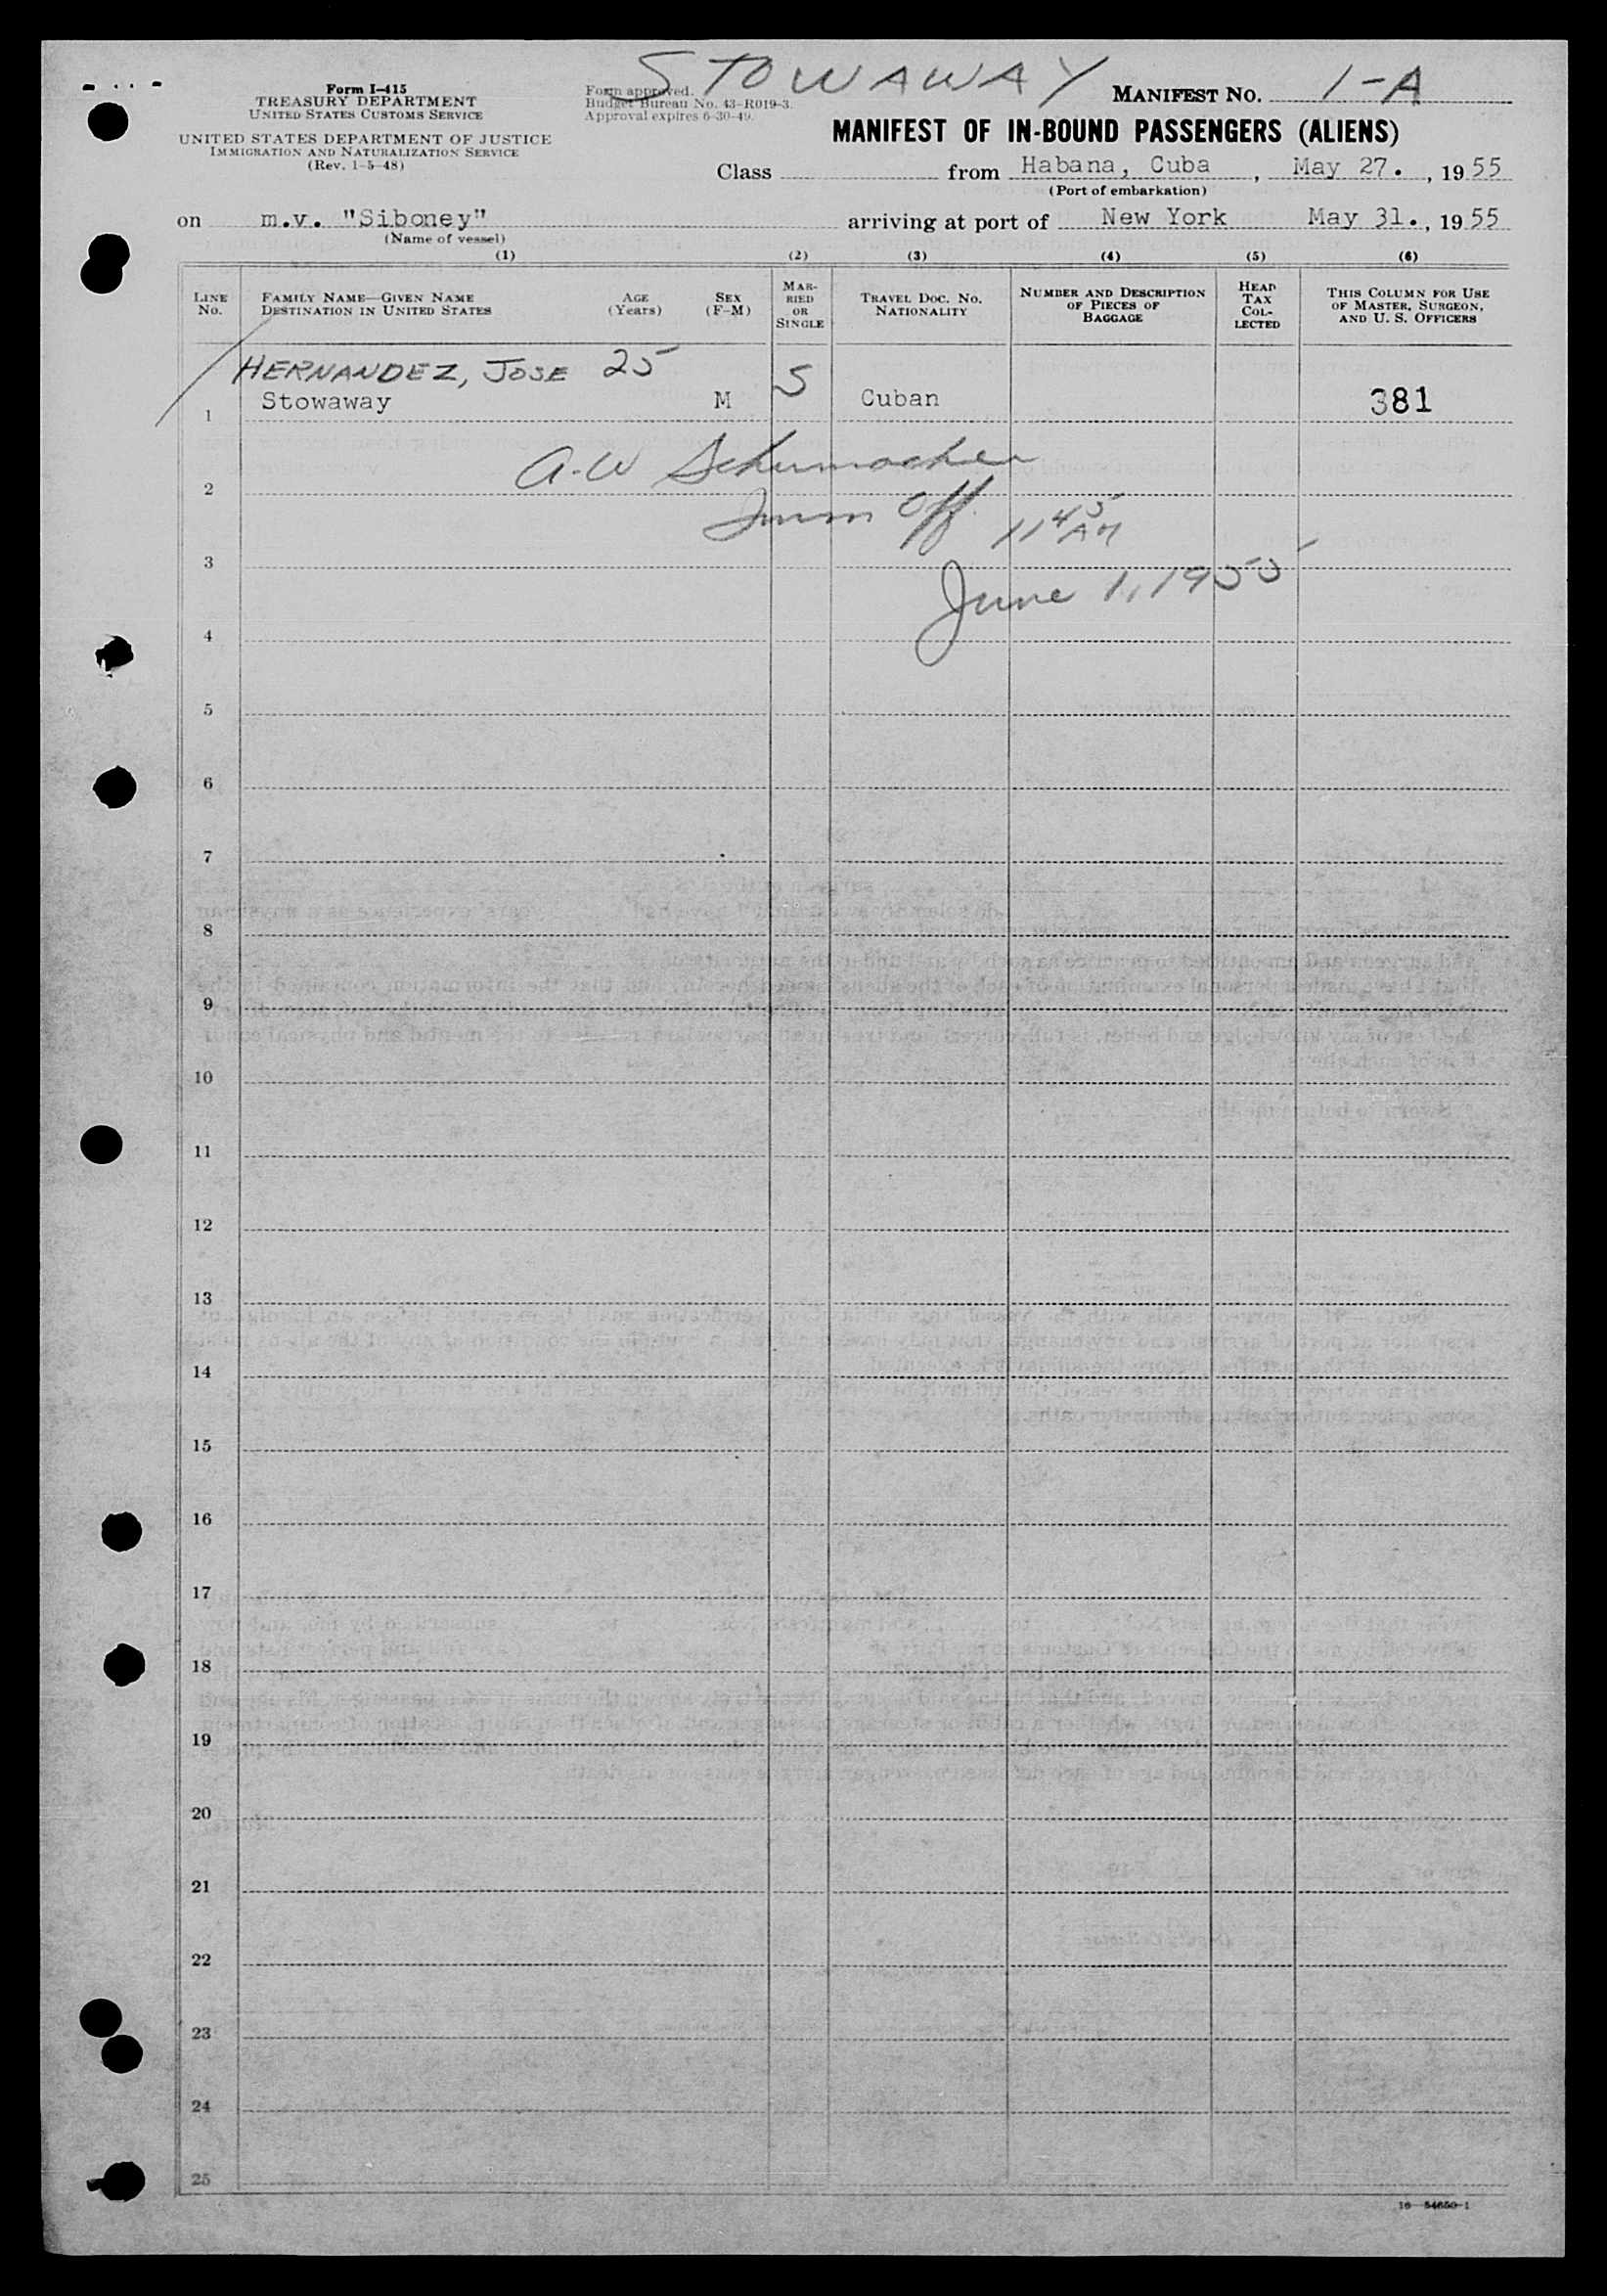 STOWAWAY
Form I-415
TREASURY DEPARTMENT
UNITED STATES CUSTOMS SERVICE
UNITED STATES DEPARTMENT OF JUSTICE
IMMIGRATION AND NATURALIZATION SERVICE
(Rev. 1-5-48)
Form approved.
Budget Bureau No. 43-R019-3.
Approval expires 6-30-49.
MANIFEST NO. 1-A
MANIFEST OF IN-BOUND PASSENGERS (ALIENS)
Class from Habana, Cuba, May 27., 1955
(Port of embarkation)
on m.v. "Siboney" arriving at port of New York May 31., 1955
(Name of vessel)
(1) (2) (3) (4) (5) (6)
LINE No.
FAMILY NAME—GIVEN NAME
DESTINATION IN UNITED STATES
AGE (Years)
SEX (F-M)
MARRIED OR SINGLE
TRAVEL DOC. NO. NATIONALITY
NUMBER AND DESCRIPTION OF PIECES OF BAGGAGE
HEAD TAX COLLECTED
THIS COLUMN FOR USE OF MASTER, SURGEON, AND U. S. OFFICERS
HERNANDEZ, JOSE 25 S
1 Stowaway M Cuban 381
A-W Schumacher
2
Imm Off.
11 45 AM
3
June 1, 1955
4
5
6
7
8
9
10
11
12
13
14
15
16
17
18
19
20
21
22
23
24
25
16—54650-1